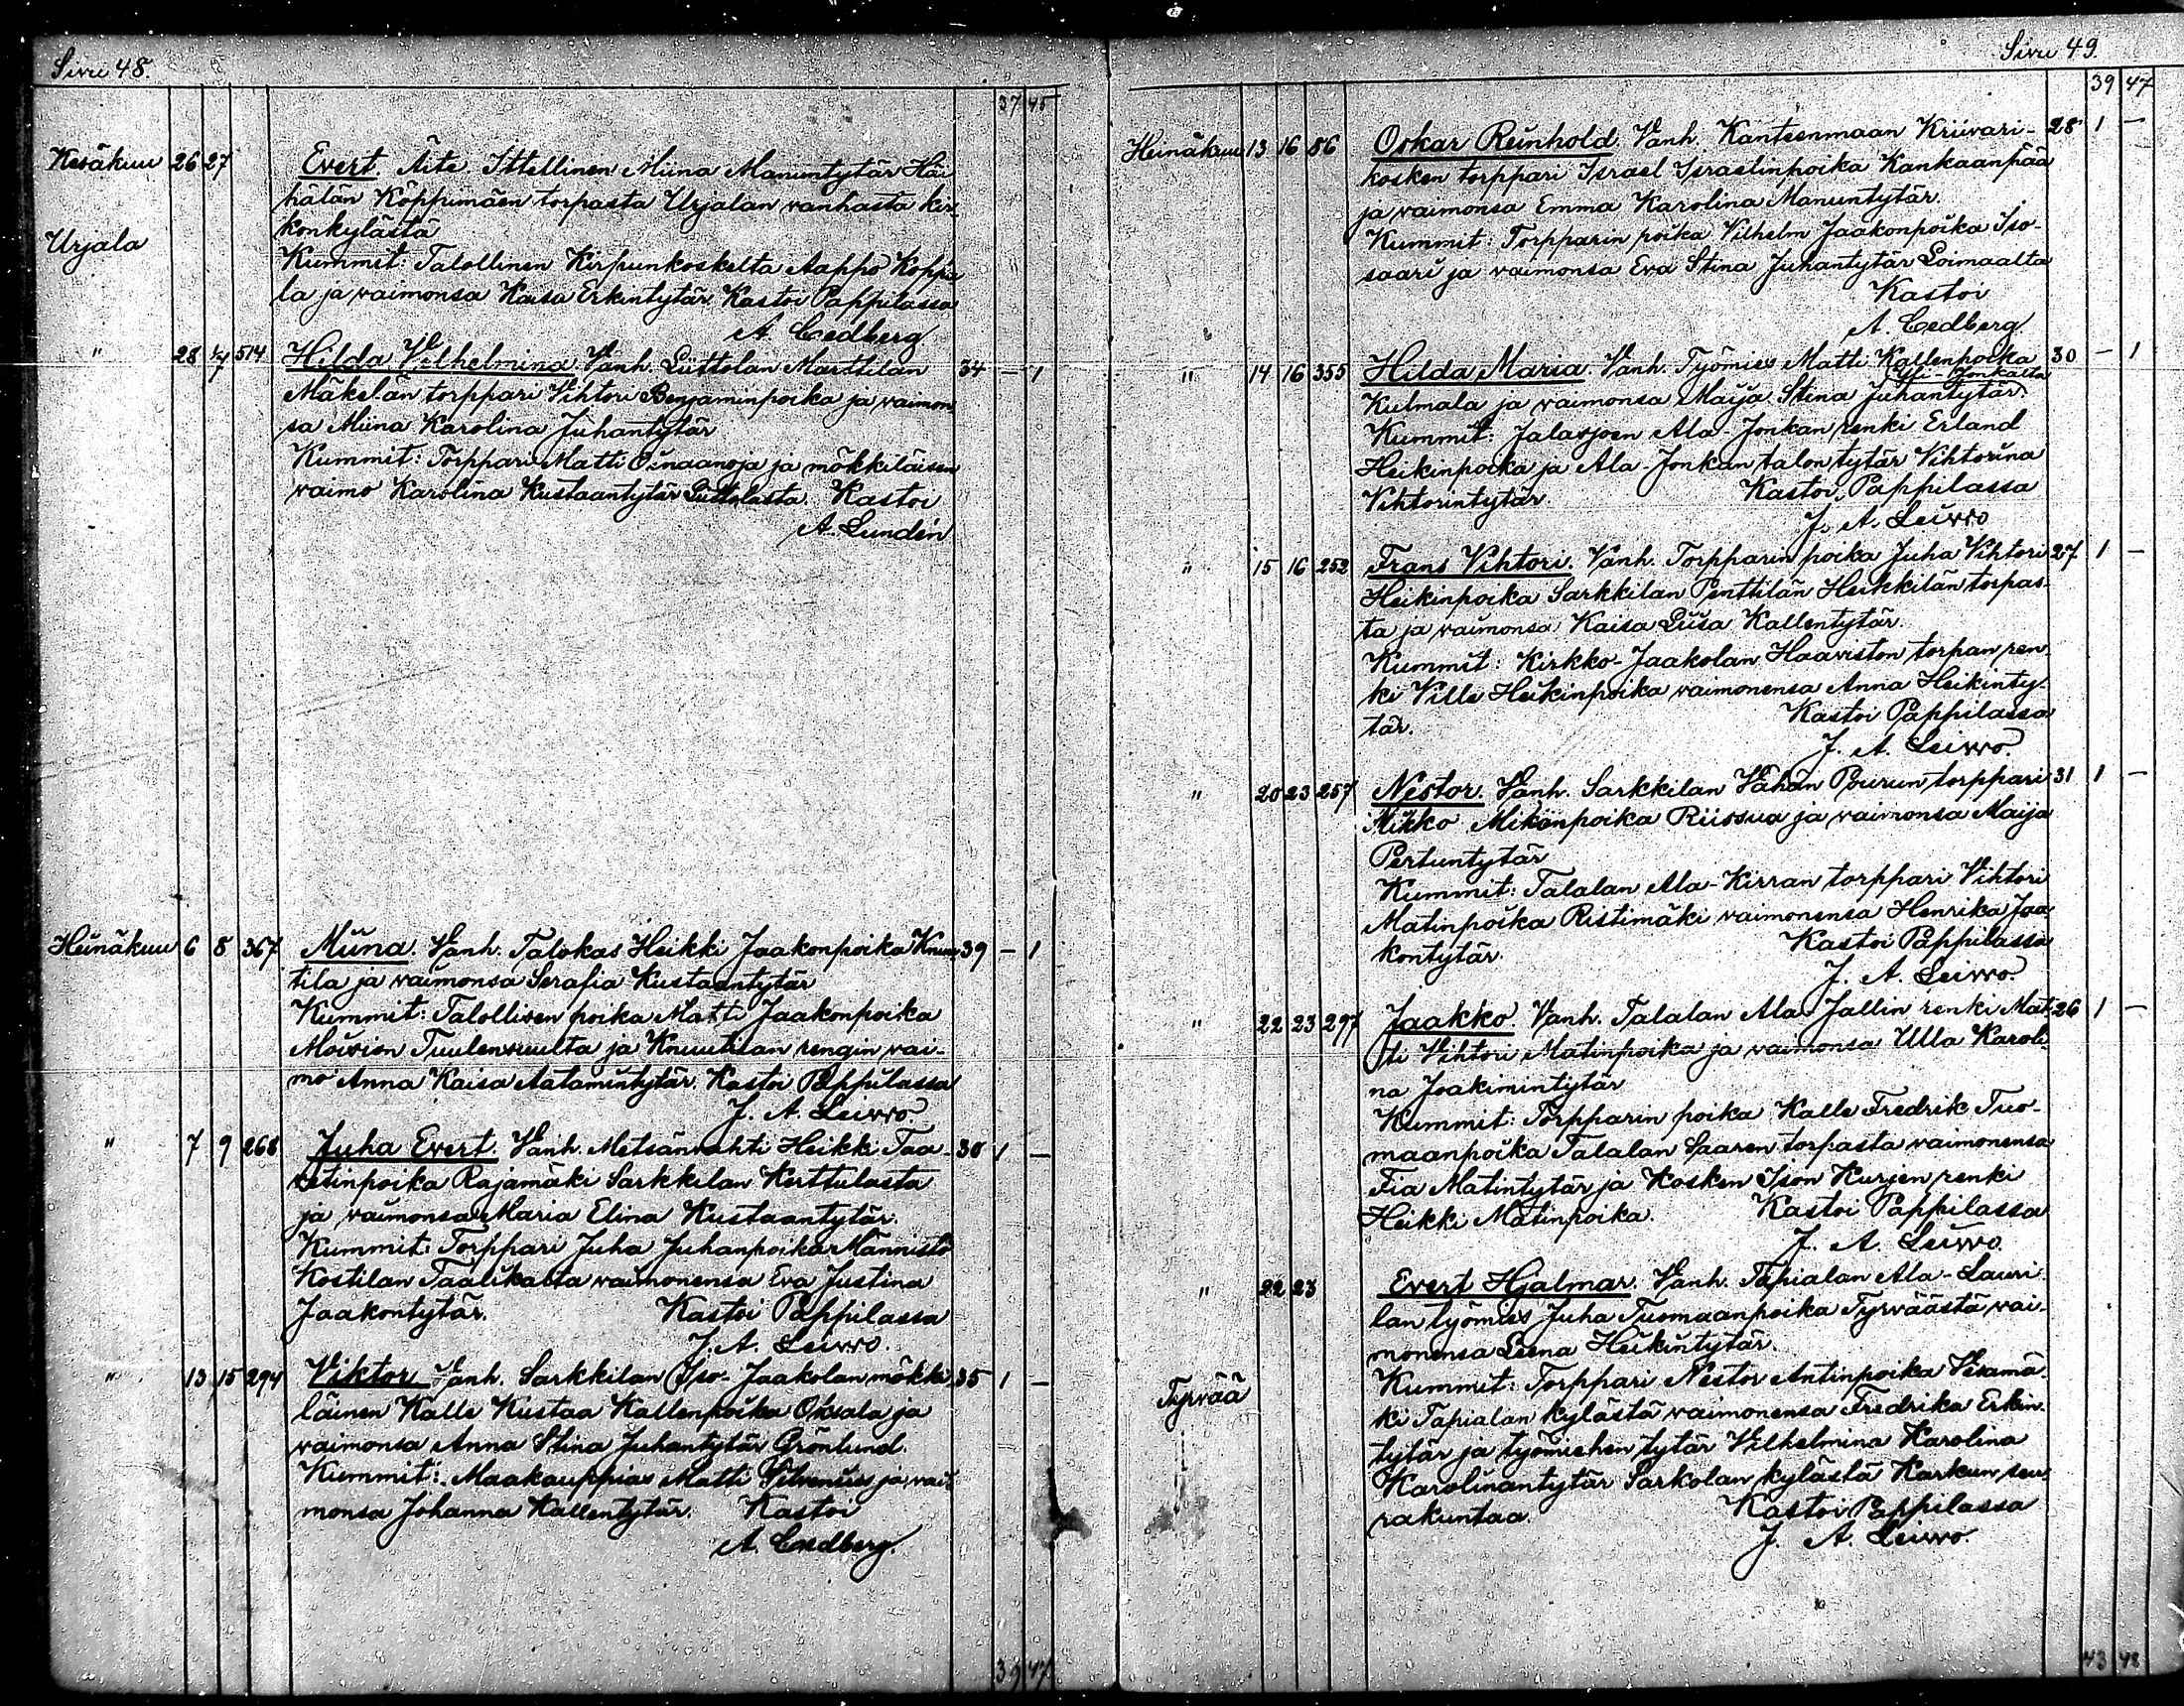 Sivu 48.
37 45
Kesäkuu 26 27 Evert. Äite. Ittellinen Miina Manuntytär Hai
hälän Köppimäen torpasta Urjalan vanhasta kir-
konkylästä
Urjala
Kummit: Talollinen Kirpunkoskelta Aappo Koppa
la ja vaimonsa Kaisa Erkintytär. Kastoi Pappilassa
A. Cedberg
" 28 1/7 514 Hilda Vilhelmina. Vanh. Liittolan Marttilan 34 — 1
Mäkelän torppari Vihtori Benjaminpoika ja vaimon
sa Miina Karolina Juhantytär
Kummit: Torppari Matti Oinaanoja ja mökkiläisen
vaimo Karolina Kustaantytär Liittolasta. Kastoi
A. Lundén
Heinäkuu 6 8 367 Miina. Vanh. Talokas Heikki Jaakonpoika Knuu 39 — 1
tila ja vaimonsa Serafia Kustaantytär
Kummit: Talollisen poika Matti Jaakonpoika
Moision Tuulensuulta ja Knuutilan rengin vai-
mo Anna Kaisa Aatamintytär. Kastoi Pappilassa
J. A. Leivvo
" 7 9 268 Juha Evert. Vanh. Metsänvahti Heikki Taa- 30 1 —
vetinpoika Rajamäki Sarkkilan Kerttulasta
ja vaimonsa Maria Elina Kustaantytär.
Kummit: Torppari Juha Juhanpoika Männistö
Kostilan Taalikalta vaimonensa Eva Justina
Jaakontytär. Kastoi Pappilassa
J. A. Leivvo.
" 13 15 294 Viktor. Vanh. Sarkkilan Iso-Jaakolan mökki 35 1 —
läinen Kalle Kustaa Kallenpoika Oksala ja
vaimonsa Anna Stina Juhantytär Grönlund.
Kummit: Maakauppias Matti Silvenius ja vai
monsa Johanna Kallentytär. Kastoi
A. Cedberg.
39 47
Sivu 49.
39 47
Heinäkuu 13 16 86 Oskar Reinhold. Vanh. Kanteenmaan Kriivari- 28 1 —
kosken torppari Israel Israelinpoika Kankaanpää
ja vaimonsa Emma Karolina Manuntytär.
Kummit: Torpparin poika Vilhelm Jaakonpoika Iso-
saari ja vaimonsa Eva Stina Juhantytär Loimaalta
Kastoi
A. Cedberg.
" 14 16 355 Hilda Maria. Vanh. Työmies Matti Kallenpoika 30 — 1
Yli-Jonkalta
Kulmala ja vaimonsa Maija Stina Juhantytär.
Kummit: Jalasjoen Ala-Jonkan renki Erland
Heikinpoika ja Ala-Jonkan talon tytär Vihtorina
Vihtorintytär. Kastoi Pappilassa
J. A. Leivvo
" 15 16 252 Frans Vihtori. Vanh. Torpparin poika Juha Vihtori 27 1 —
Heikinpoika Sarkkilan Penttilän Heikkilän torpas-
ta ja vaimonsa Kaisa Liisa Kallentytär.
Kummit: Kirkko-Jaakolan Haaviston torpan ren-
ki Ville Heikinpoika vaimonensa Anna Heikinty-
tär. Kastoi Pappilassa
J. A. Leivvo.
" 20 23 257 Nestor. Vanh. Sarkkilan Vähän Pourun torppari 31 1 —
Mikko Mikonpoika Riissua ja vaimonsa Maija
Pertuntytär
Kummit: Talalan Ala-Kirran torppari Vihtori
Matinpoika Ristimäki vaimonensa Henrika Jaa
kontytär. Kastoi Pappilassa
J. A. Leivvo.
" 22 23 297 Jaakko. Vanh. Talalan Ala-Jallin renki Mat 26 1 —
ti Vihtori Matinpoika ja vaimonsa Ulla Karoli
na Joakimintytär
Kummit: Torpparin poika Kalle Fredrik Tuo-
maanpoika Talalan Saaren torpasta vaimonensa
Fia Matintytär ja Kosken Ison Kurjen renki
Heikki Matinpoika. Kastoi Pappilassa
J. A. Leivvo.
" 22 23 Evert Hjalmar. Vanh. Tapialan Ala-Lauri
lan työmies Juha Tuomaanpoika Tyrväästä vai-
monensa Leena Heikintytär.
Tyrvää
Kummit: Torppari Nestor Antinpoika Vesamä
ki Tapialan kylästä vaimonensa Fredrika Erkin-
tytär ja työmiehen tytär Vilhelmina Karolina
Karolinantytär Sarkolan kylästä Karkun seu
rakuntaa. Kastoi Pappilassa
J. A. Leivvo.
43 48